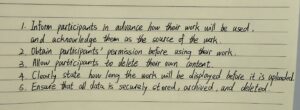 1. Inform participants in advance how their work will be used,
and acknowledge them as the source of the work.
2. Obtain participants' permission before using their work.
3. Allow participants to delete their own content.
4. Clearly state how long the work will be displayed before it is uploaded.
6. Ensure that all data is securely stored, archived, and deleted.